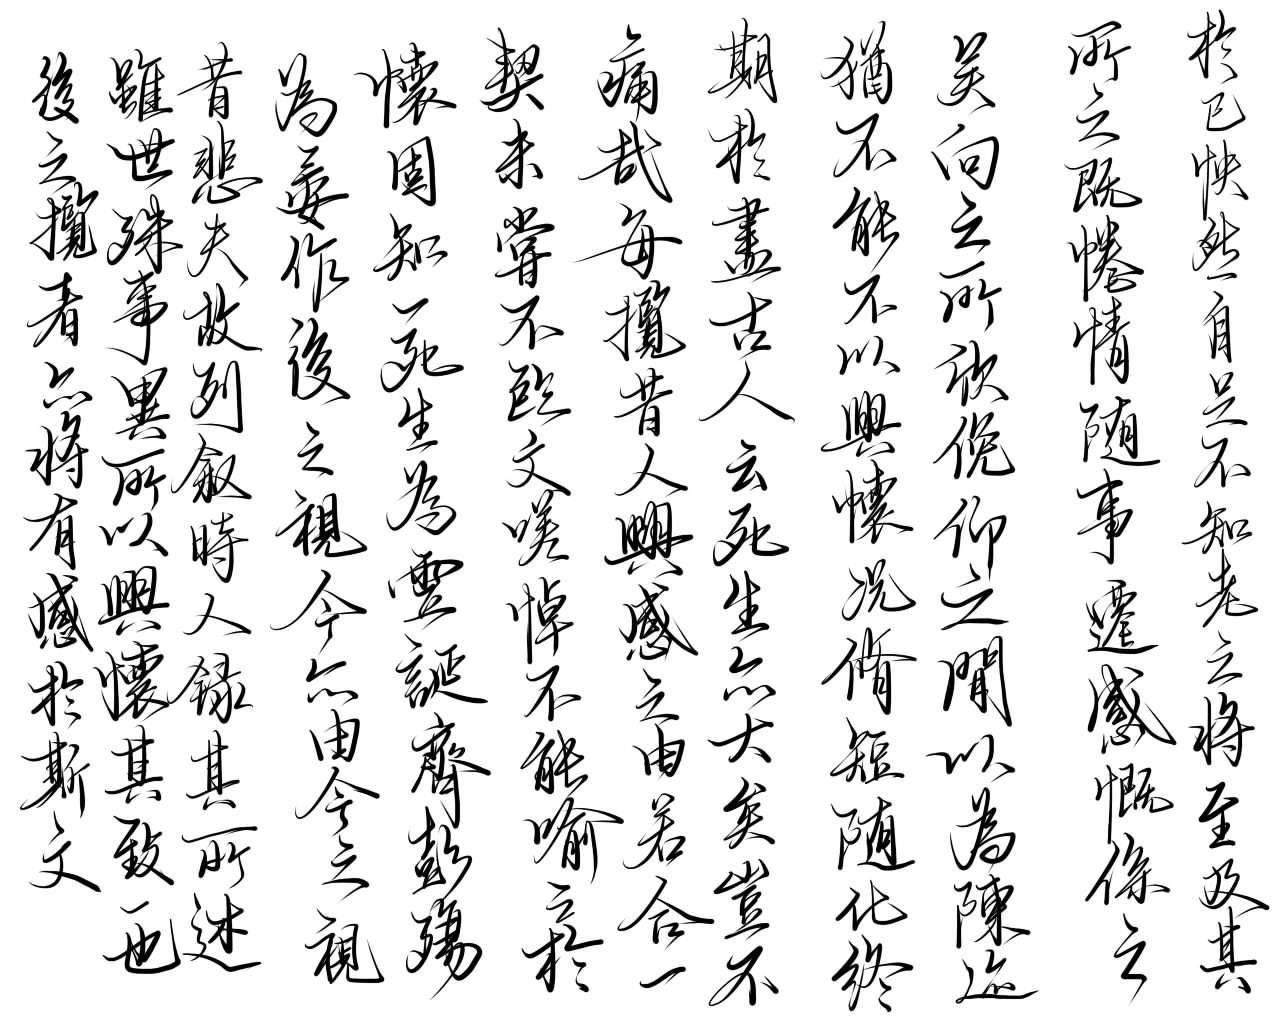 於己快然自足不知老之將至及其
所之既惓情隨事遷感慨係之
矣向之所欣俛仰之閒以為陳迹
猶不能不以興懷况脩短隨化終
期於盡古人云死生亦大矣豈不
痛哉每攬昔人興感之由若合一
契未嘗不臨文嗟悼不能喻之於
懷固知一死生為虛誕齊彭殤
為妄作後之視今亦由今之視
昔悲夫故列敘時人錄其所述
雖世殊事異所以興懷其致一也
後之攬者亦將有感於斯文